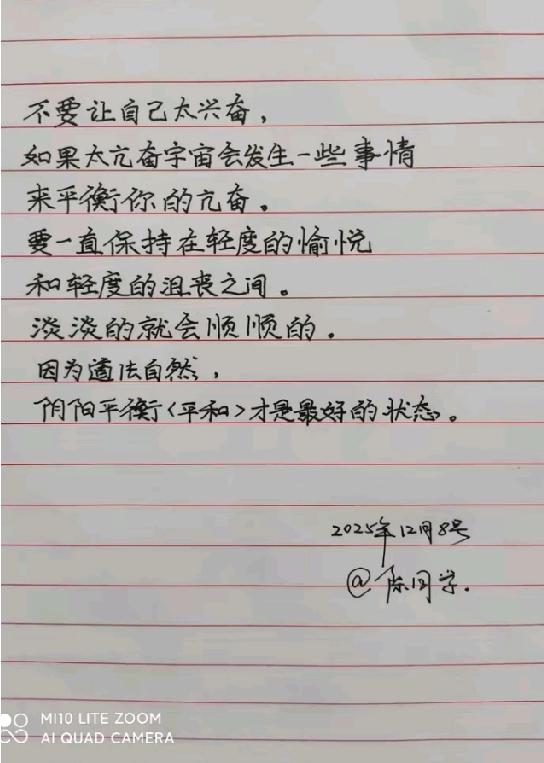 不要让自己太兴奋，
如果太亢奋宇宙会发生一些事情
来平衡你的亢奋。
要一直保持在轻度的愉悦
和轻度的沮丧之间。
淡淡的就会顺顺的。
因为道法自然，
阴阳平衡<平和>才是最好的状态。
2025年12月8号
@陈同学.
MI 10 LITE ZOOM
AI QUAD CAMERA